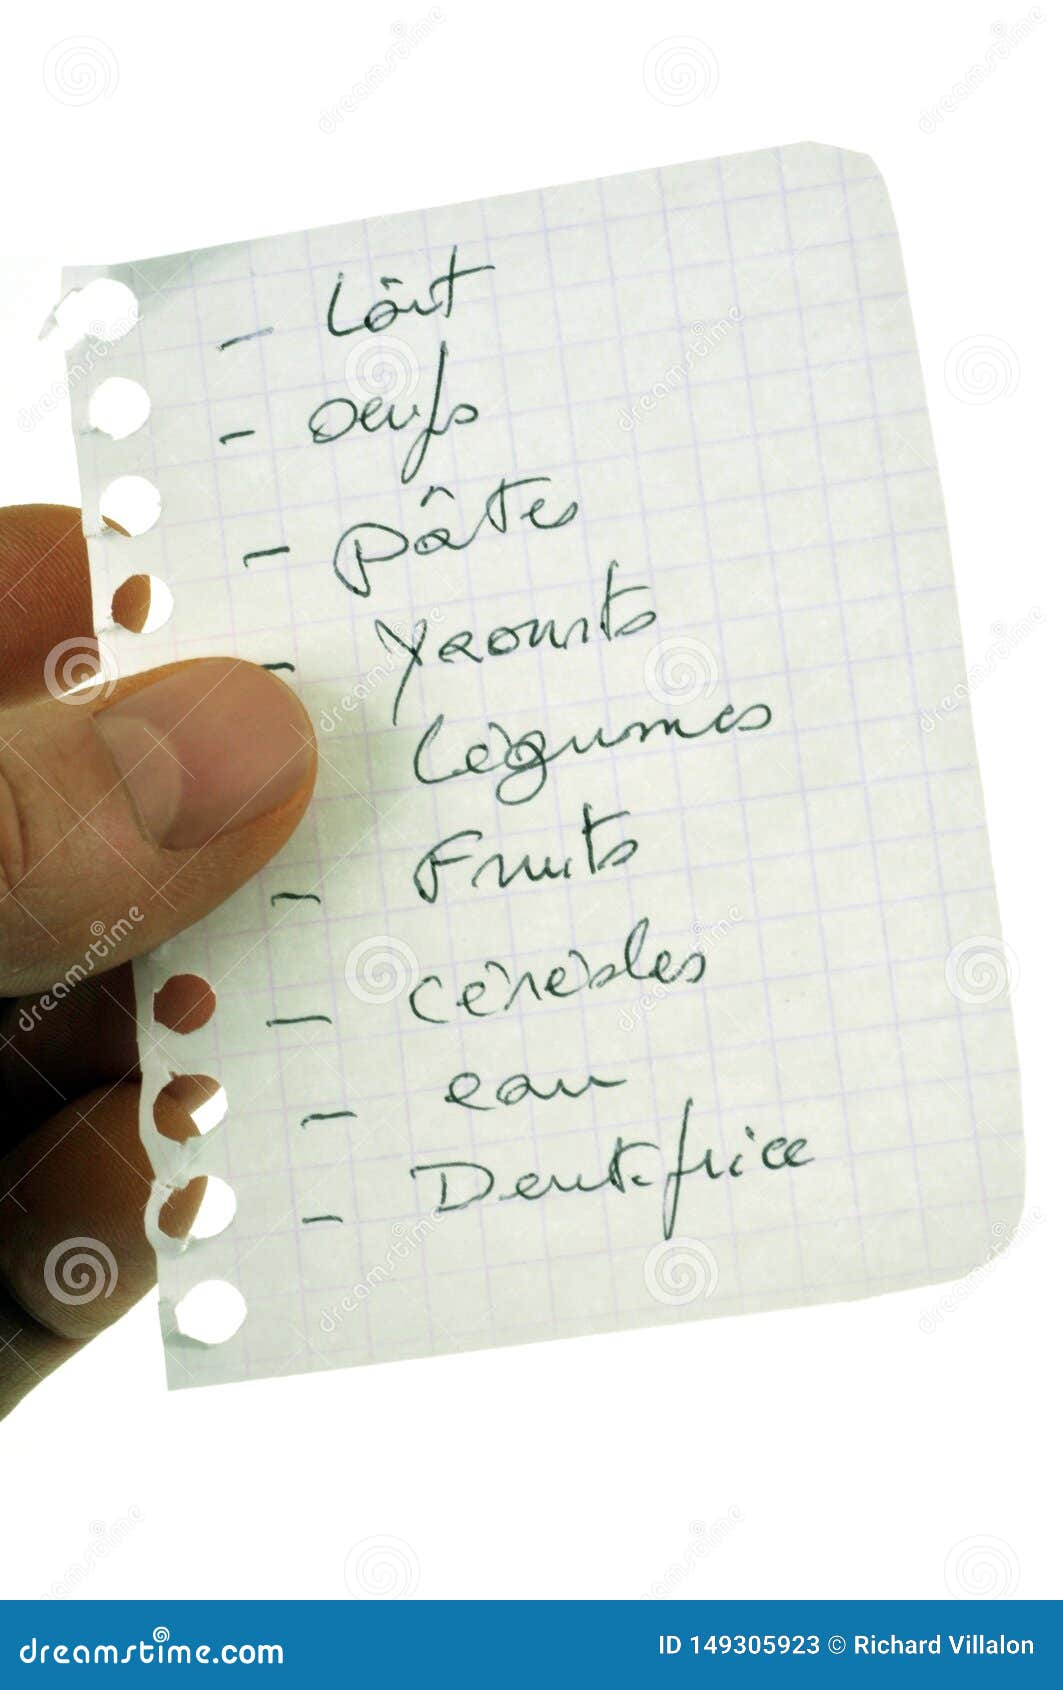 - Lait
- oeufs
- pâtes
- Yaourts
Légumes
- Fruits
- céréales
- eau
- Dentifrice
dreamstime.com
ID 149305923 © Richard Villalon